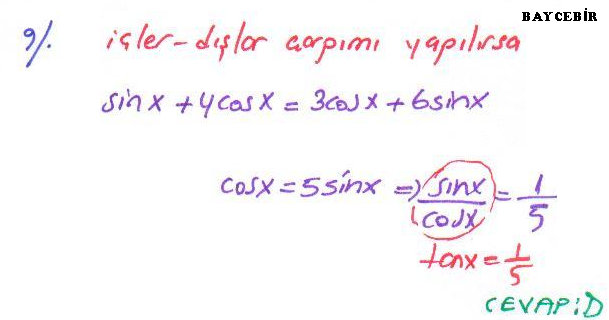 BAYCEBİR
9/. içler-dışlar çarpımı yapılırsa
sinx + 4cosx = 3cosx + 6sinx
cosx = 5sinx => sinx/cosx = 1/5
tanx = 1/5
CEVAP:D